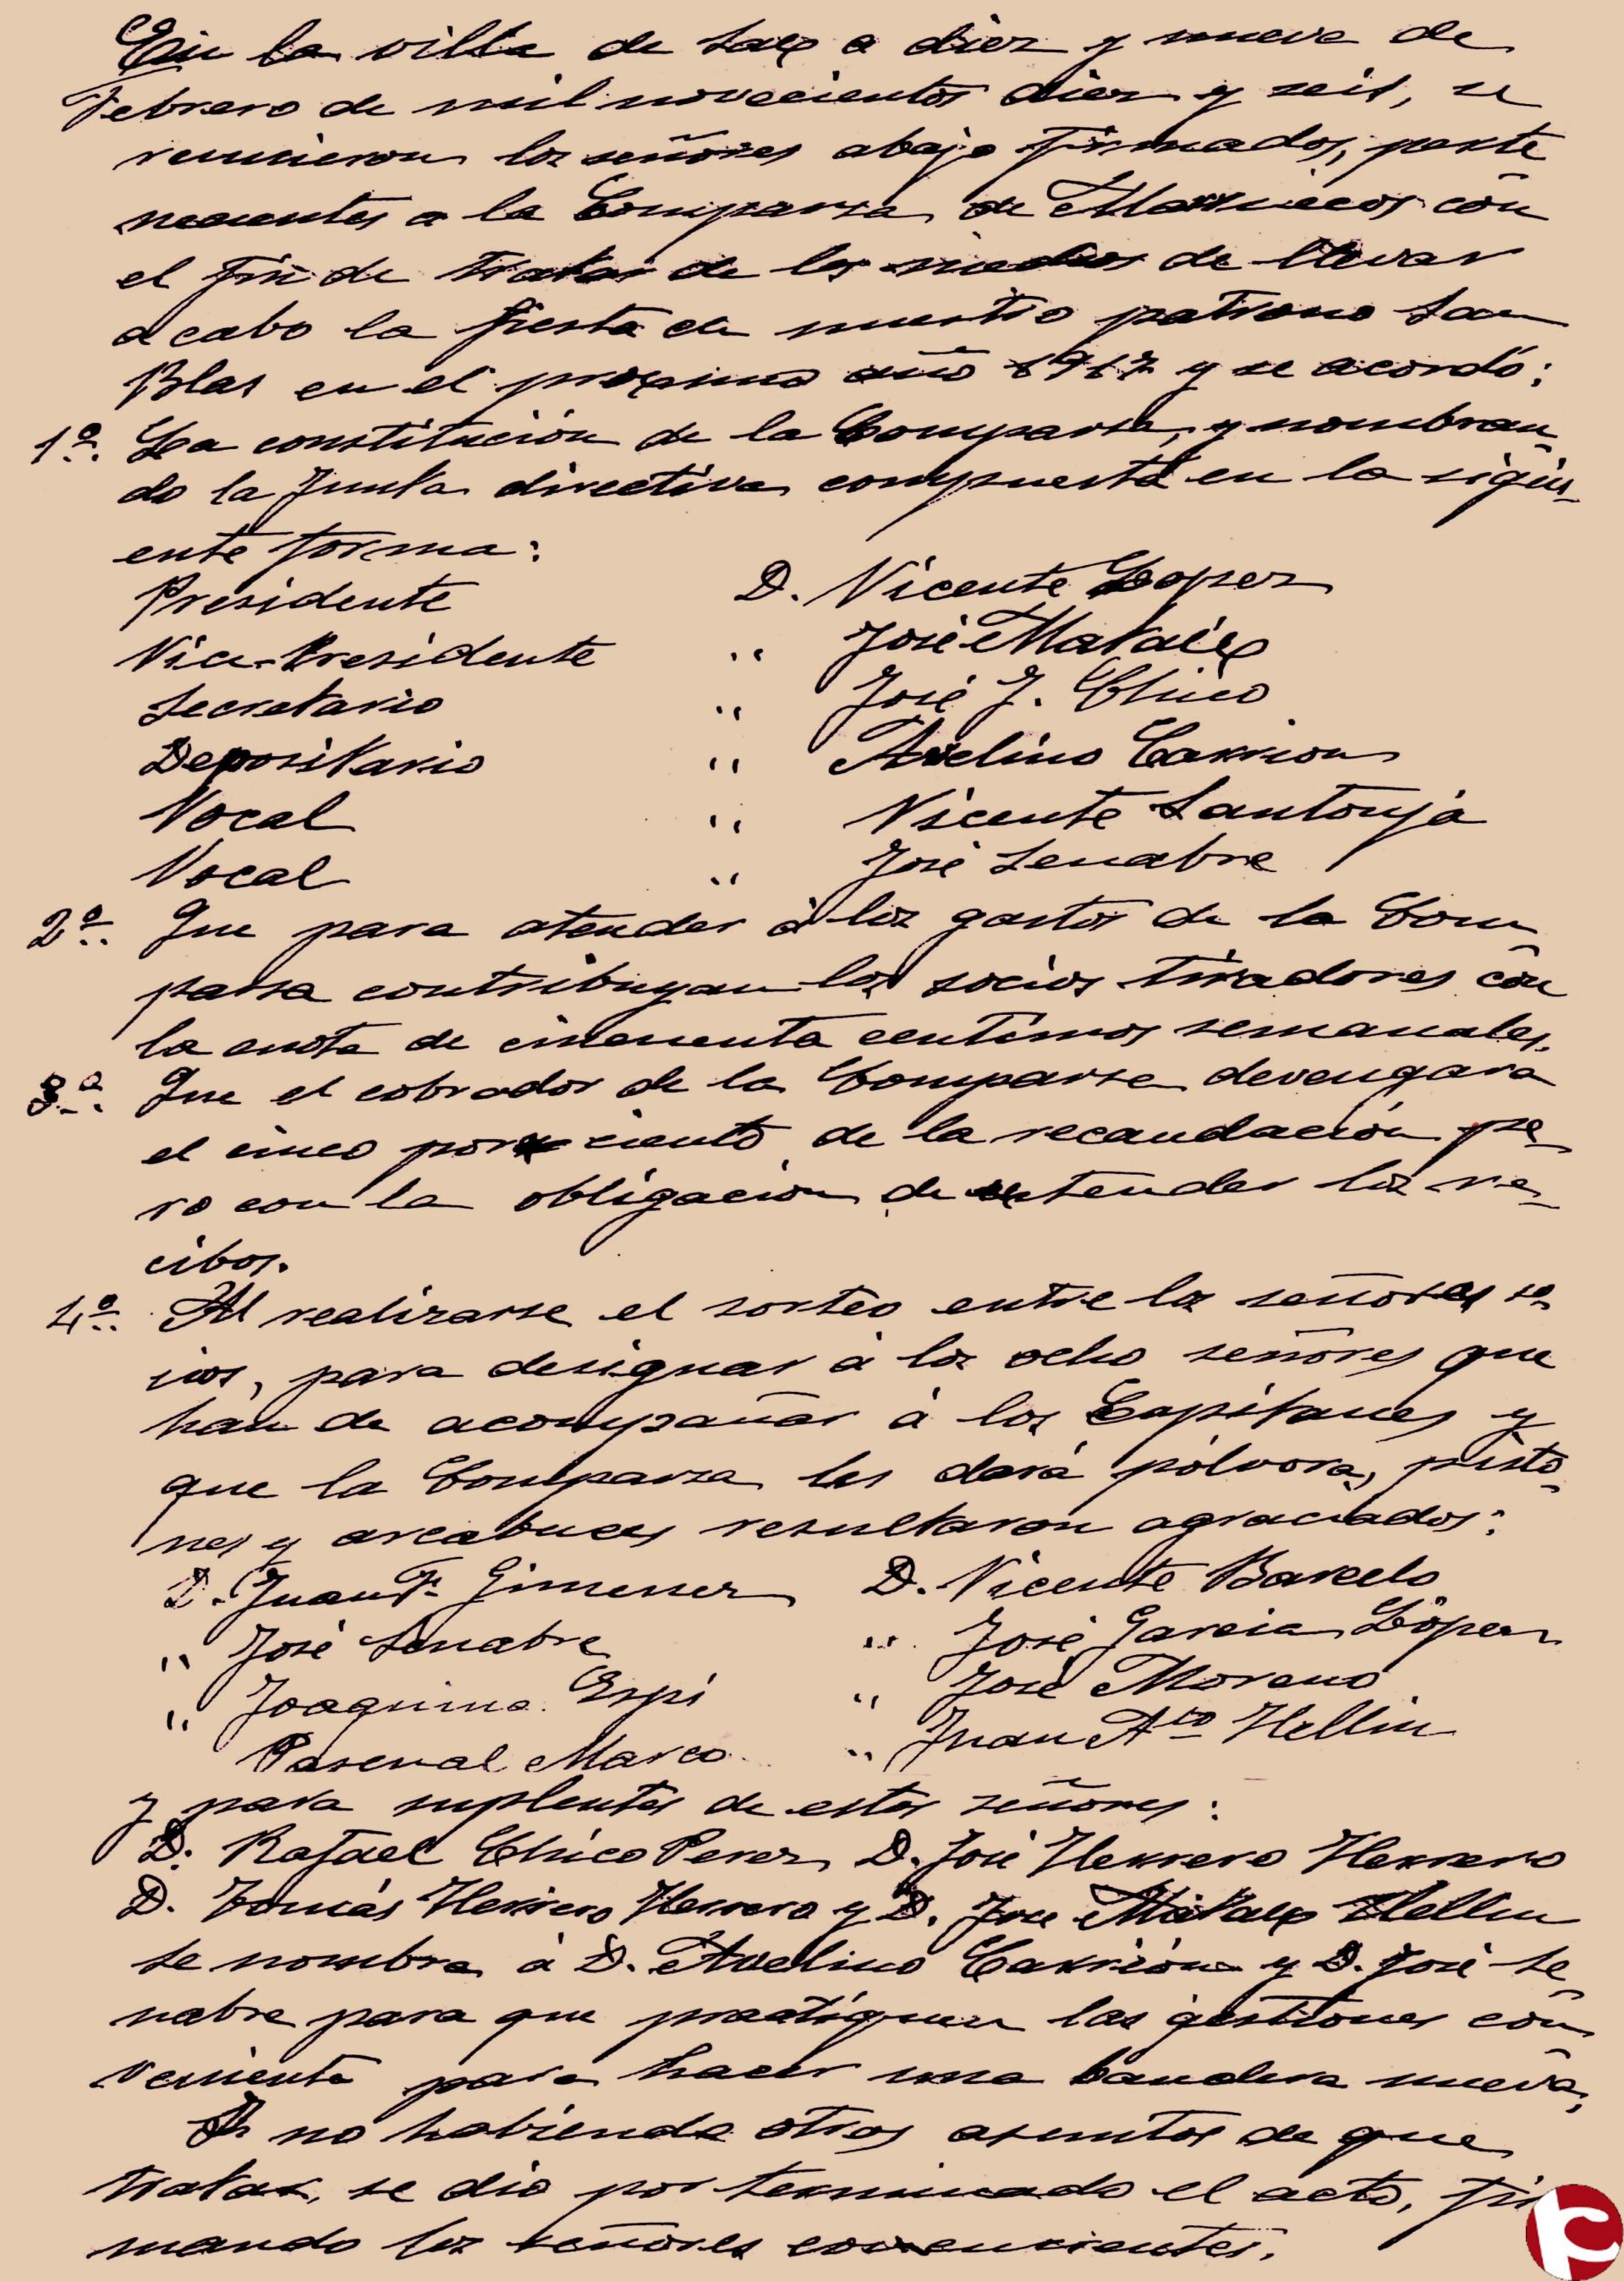 En la villa de Sax a diez y nueve de
Febrero de mil novecientos diez y seis, se
reunieron los señores abajo firmados, perte
necientes a la Comparsa de Marruecos con
el fin de tratar de los medios de llevar
a cabo la fiesta de nuestro patrono San
Blas en el proximo año 1917 y se acordó:
1º. La constitución de la Comparsa, y nombran-
do la Junta directiva compuesta en la sigüi-
ente forma:
Presidente D. Vicente Lopez
Vice-Presidente " José Mataix
Secretario " José J. Chico
Depositario " Avelino Carrion
Vocal " Vicente Santonja
Vocal " José Senabre
2º. Que para atender á los gastos de la Com
parsa contribuyan los socios tiradores con
la cuota de cincuenta centimos semanales.
3º. Que el cobrador de la Comparsa devengara
el cinco por ciento de la recaudación pe-
ro con la obligación de extender los re-
cibos.
4º. Al realizarse el sorteo entre los señores so-
cios, para designar á los ocho señores que
han de acompañar á los Capitanes y
que la Comparsa les dará pólvora, pisto-
nes y arcabuces resultaron agraciados:
D. Juan Fº Gimenez D. Vicente Barcelo
" José Senabre " José Garcia López
" Joaquin Espí " José Moreno
Pascual Marco " Juan Aⁿᵗᵒ Hellin
y para suplentes de estos señores:
D. Rafael Chico Perez, D. José Herrero Herrero
D. Tomás Herrero Herrero y D. Jose Mataix Hellin
se nombra á D. Avelino Carrión y D. José Se-
nabre para que practiquen las gestiones con-
veniente para hacer una bandera nueva,
Y no habiendo otros asuntos de que
tratar, se dió por terminado el acto, fir
mando los señores concurrentes.